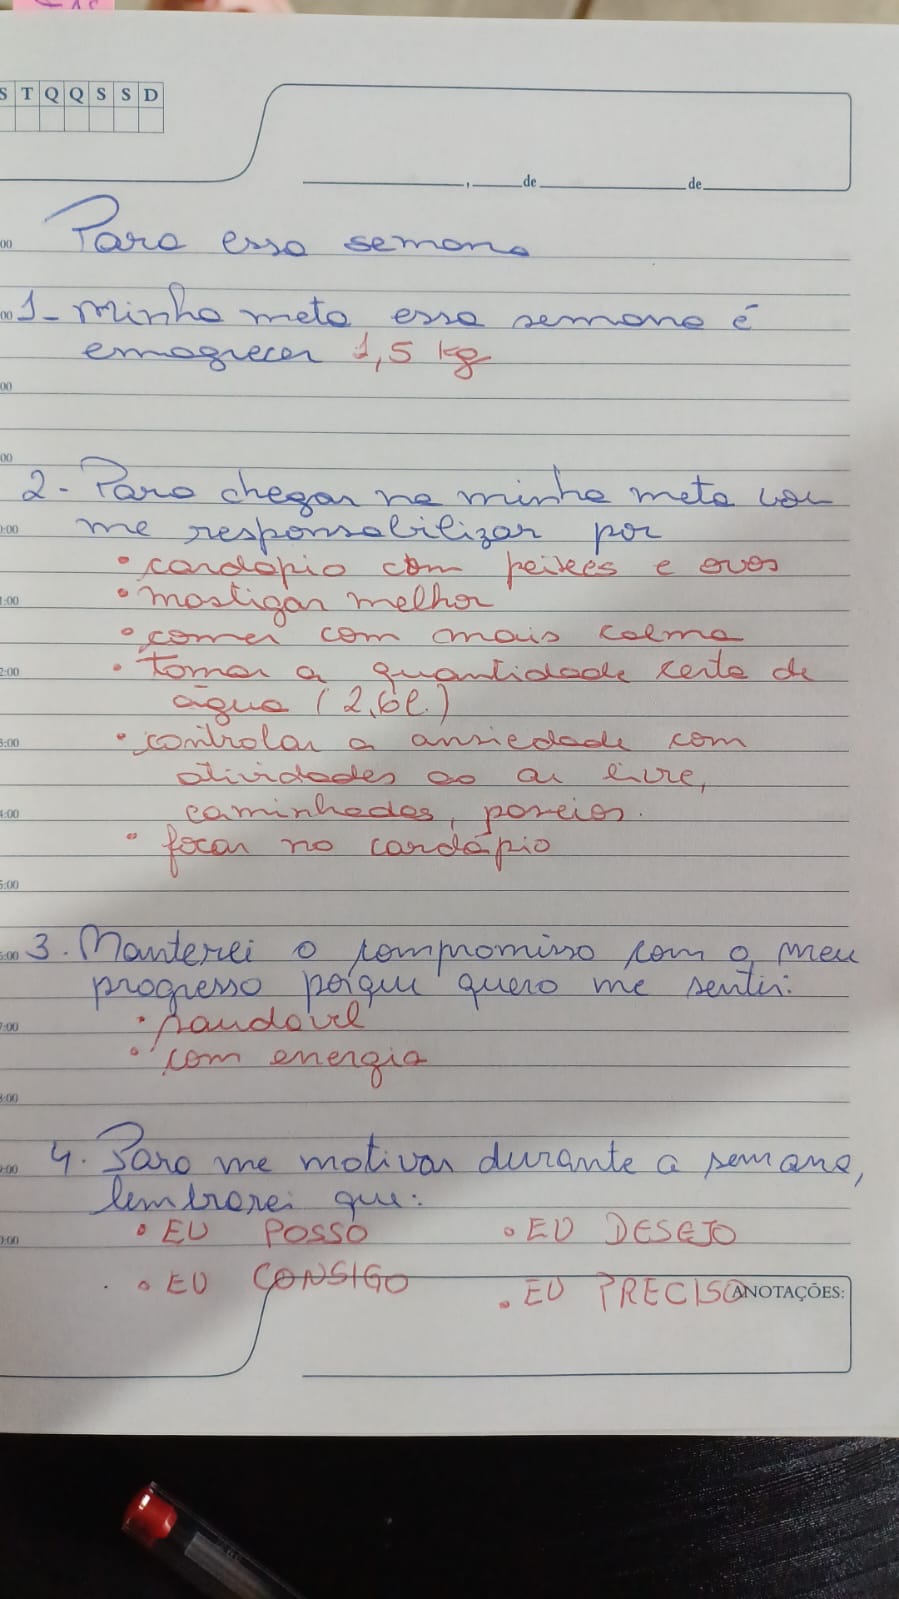 S T Q Q S S D
, de de
00 Para essa semana
00 1- Minha meta essa semana é
emagrecer 1,5 kg
00
00
2- Para chegar na minha meta vou
0:00 me responsabilizar por
• cardápio com peixes e ovos
1:00 • mastigar melhor
• comer com mais calma
2:00 • tomar a quantidade certa de
água (2,6l.)
3:00 • controlar a ansiedade com
atividades ao ar livre,
4:00 caminhadas, passeios.
• focar no cardápio
5:00
6:00 3. Manterei o compromisso com o meu
progesso porque quero me sentir:
7:00 • saudável
• com energia
8:00
9:00 4. Para me motivar durante a semana,
lembrarei que:
0:00 • EU POSSO • EU DESEJO
• EU CONSIGO • EU PRECISO
ANOTAÇÕES: